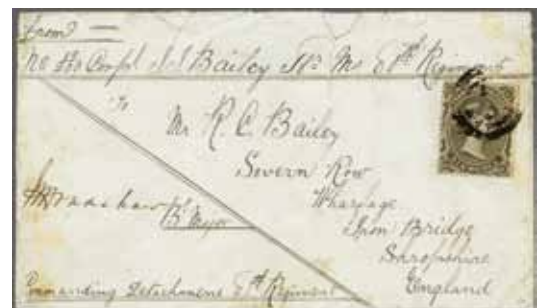 From —
Corpl Bailey Regiment
To
Mr R. C. Bailey
Severn Row
Wharfage
Iron Bridge
Shropshire
England
Bradshaw
Bt Major
Commanding Detachment 8th Regiment